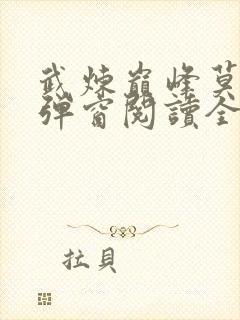 武煉巔峰莫
彈窗閱讀全
拉貝